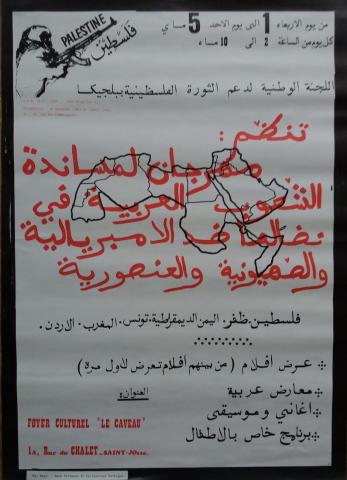 PALESTINE
فلسطين
من يوم الاربعاء 1 الى يوم الاحد 5 ماي
كل يوم من الساعة 2 الى 10 مساء
اللجنة الوطنية لدعم الثورة الفلسطينية ببلجيكا
تنظم :
مهرجان لمساندة
الشعوب العربية في
نضالها ضد الامبريالية
والصهيونية والعنصورية
فلسطين. ظفر. اليمن الديمقراطية. تونس. المغرب. الاردن.
عرض افلام (من بينهم افلام تعرض لأول مرة)
معارض عربية
اغاني وموسيقى
برنامج خاص بالاطفال
العنوان:
FOYER CULTUREL "LE CAVEAU"
1A, Rue du CHALET - SAINT-JOSSE.